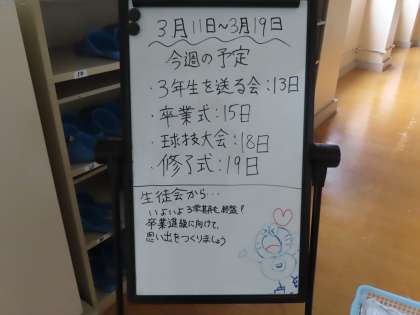 3月11日～3月19日
今週の予定
・3年生を送る会：13日
・卒業式：15日
・球技大会：18日
・修了式：19日
生徒会から…
いよいよ3学期も終盤！
卒業進級に向けて、
思い出をつくりましょう